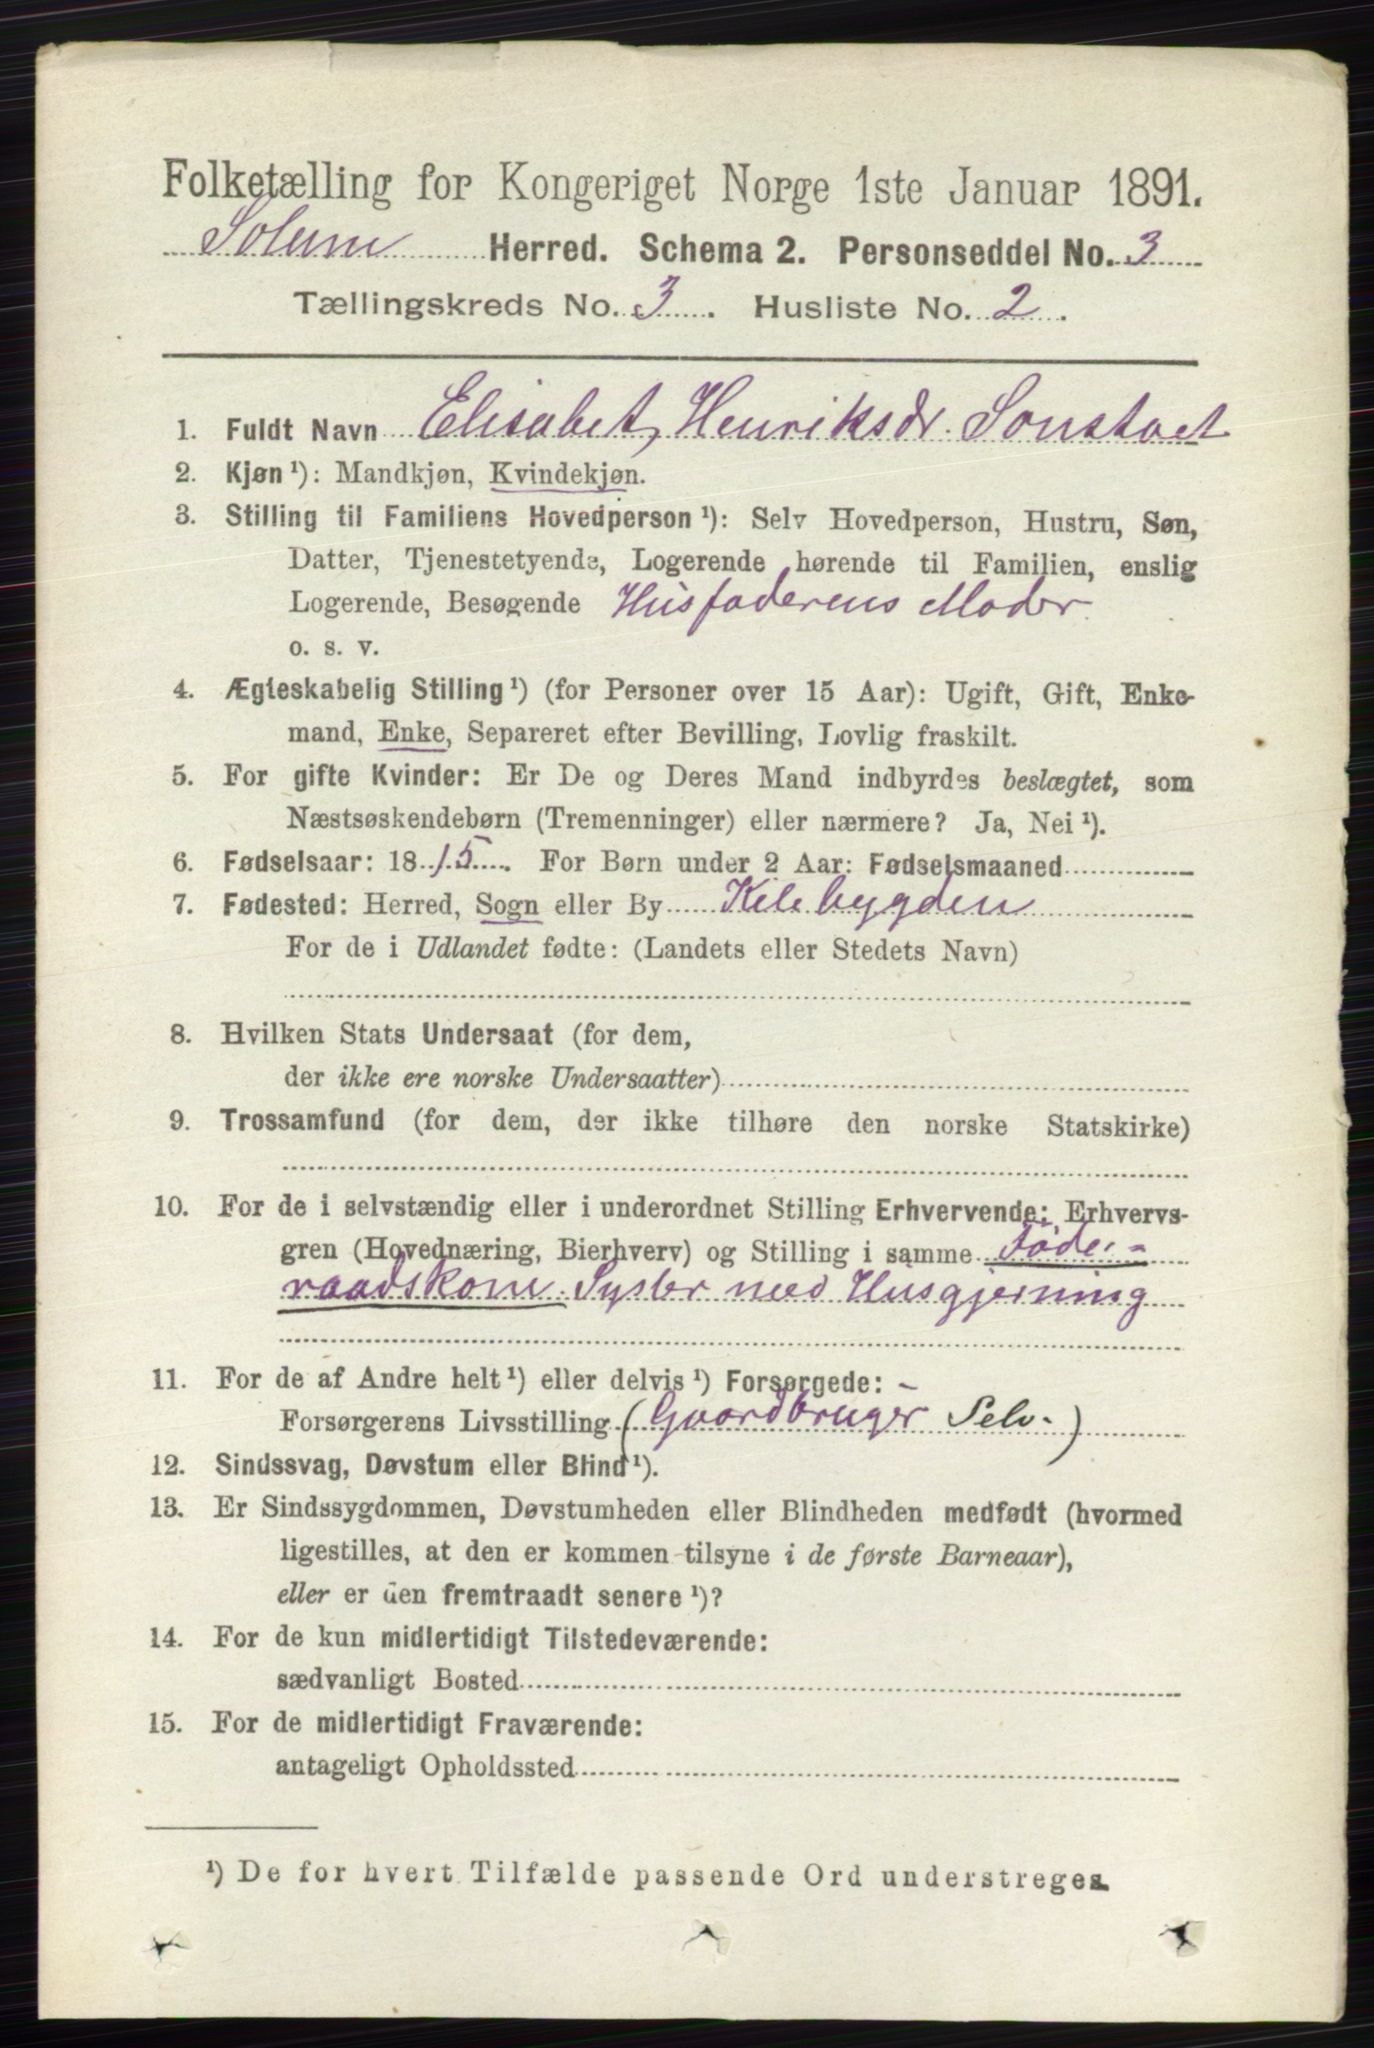 Folketælling for Kongeriget Norge 1ste Januar 1891.
Solum Herred. Schema 2. Personseddel No. 3
Tællingskreds No. 3. Husliste No. 2.
1. Fuldt Navn Elisabet, Henriksdr. Sonstaet
2. Kjøn ¹): Mandkjøn, Kvindekjøn.
3. Stilling til Familiens Hovedperson ¹): Selv Hovedperson, Hustru, Søn,
Datter, Tjenestetyende, Logerende hørende til Familien, enslig
Logerende, Besøgende Husfaderens Moder.
o. s. v.
4. Ægteskabelig Stilling ¹) (for Personer over 15 Aar): Ugift, Gift, Enke-
mand, Enke, Separeret efter Bevilling, Lovlig fraskilt.
5. For gifte Kvinder: Er De og Deres Mand indbyrdes beslægtet, som
Næstsøskendebørn (Tremenninger) eller nærmere? Ja, Nei ¹).
6. Fødselsaar: 1815. For Børn under 2 Aar: Fødselsmaaned
7. Fødested: Herred, Sogn eller By Kilebygden
For de i Udlandet fødte: (Landets eller Stedets Navn)
8. Hvilken Stats Undersaat (for dem,
der ikke ere norske Undersaatter)
9. Trossamfund (for dem, der ikke tilhøre den norske Statskirke)
10. For de i selvstændig eller i underordnet Stilling Erhvervende: Erhvervs-
gren (Hovednæring, Bierhverv) og Stilling i samme Föde-
raadskone. Sysler med Husgjerning
11. For de af Andre helt ¹) eller delvis ¹) Forsørgede: -
Forsørgerens Livsstilling (Gaardbruger Selv-)
12. Sindssvag, Døvstum eller Blind ¹).
13. Er Sindssygdommen, Døvstumheden eller Blindheden medfødt (hvormed
ligestilles, at den er kommen tilsyne i de første Barneaar),
eller er den fremtraadt senere ¹)?
14. For de kun midlertidigt Tilstedeværende:
sædvanligt Bosted
15. For de midlertidigt Fraværende:
antageligt Opholdssted
¹) De for hvert Tilfælde passende Ord understreges.